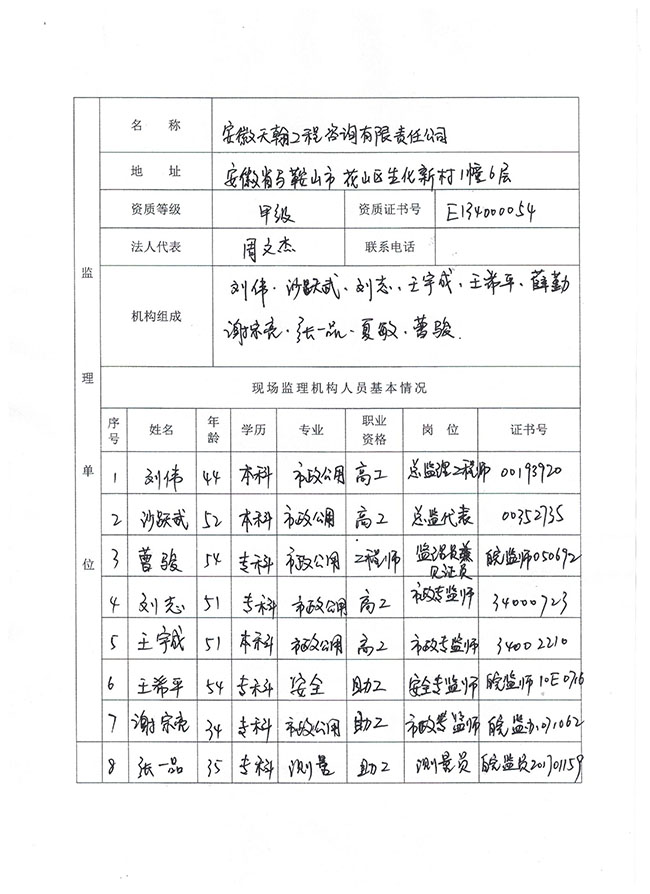 名 称 安徽天翰工程咨询有限责任公司
地 址 安徽省马鞍山市花山区生化新村11幢6层
资质等级 甲级 资质证书号 E134000054
法人代表 周文杰 联系电话
机构组成 刘伟、沙跃武、刘志、王宇成、王希平、薛勤
谢宗亮、张一品、夏敏、曹骏.
监理单位
现场监理机构人员基本情况
序号 姓名 年龄 学历 专业 职业资格 岗位 证书号
1 刘伟 44 本科 市政公用 高工 总监理工程师 00193920
2 沙跃武 52 本科 市政公用 高工 总监代表 00352735
3 曹骏 54 专科 市政公用 工程师 监理员兼见证员 皖监师050692
4 刘志 51 专科 市政公用 高工 市政专监师 34000723
5 王宇成 51 本科 市政公用 高工 市政专监师 34002210
6 王希平 54 专科 安全 助工 安全专监师 皖监师10E0716
7 谢宗亮 34 专科 市政公用 助工 市政专监师 皖监办071062
8 张一品 35 专科 测量 助工 测量员 皖监员201701159